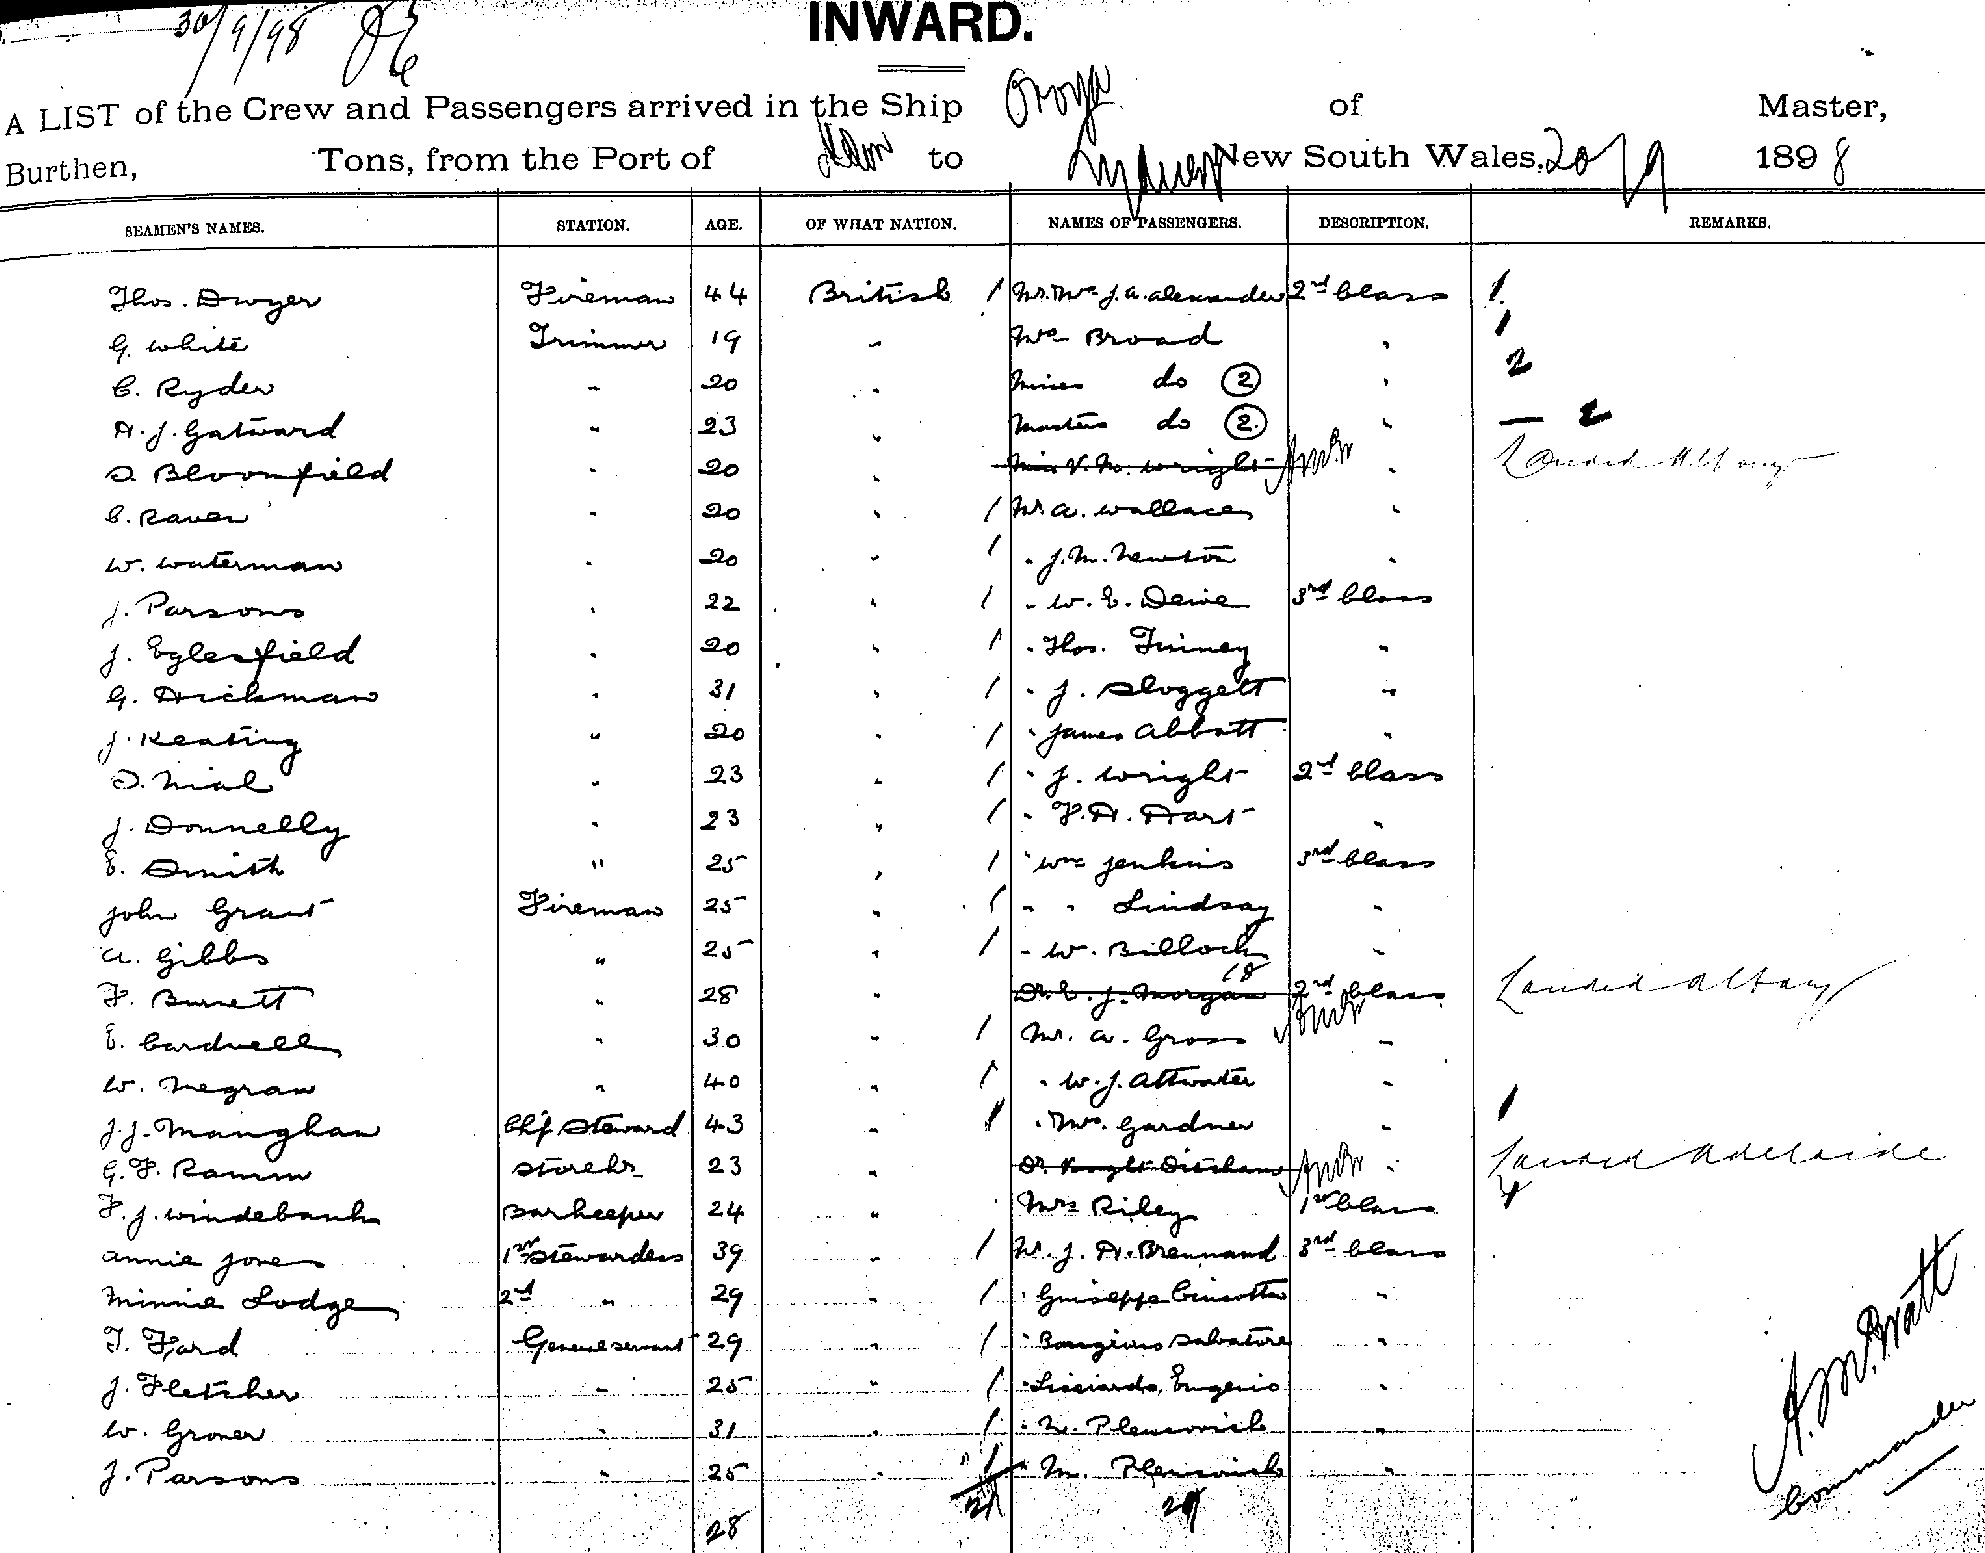 30/9/98
INWARD.
A LIST of the Crew and Passengers arrived in the Ship Oroya of Master,
Burthen, Tons, from the Port of to Sydney New South Wales, 20/9 1898
SEAMEN'S NAMES. STATION. AGE. OF WHAT NATION. NAMES OF PASSENGERS. DESCRIPTION. REMARKS.
Thos. Dwyer Fireman 44 British 1 Mr. Mrs J. A. Alexander 2nd Class 1
G. White Trimmer 19 " Mrs Broad " 1
C. Ryder " 20 " Misses do 2 " 2
A. J. Gatward " 23 " Masters do 2 " — 2
S. Bloomfield " 20 " Miss V. M. Wright " Landed Albany
C. Raven " 20 " 1 Mr. A. Wallace "
W. Waterman " 20 " 1 " J. M. Newton "
J. Parsons " 22 " 1 " W. E. 3rd Class
J. Eglesfield " 20 " 1 " Thos. Finney "
G. Hickman " 31 " 1 " J. Sloggett "
J. Keating " 20 " 1 " James Abbott "
D. Nial " 23 " 1 " J. Wright 2nd Class
J. Donnelly " 23 " 1 " F. H. Hart "
E. Smith " 25 " 1 " Wm Jenkins 3rd Class
John Grant Fireman 25 " 1 " " Lindsay "
A. Gibbs " 25 " 1 " W. Billock "
18
F. Burnett " 28 " Dr. E. J. Morgan 2nd Class Landed Albany
E. Cardwell " 30 " 1 Mr. A. Gross "
W. Megraw " 40 " 1 " W. J. Attwater "
J. J. Manghan Chf Steward 43 " 1 " Mrs. Gardner " 1
G. F. Ramm Storekr 23 " Dr. " Landed Adelaide
F. J. Windebank Barkeeper 24 " Mrs Riley 1st Class 1
Annie Jones 1st Stewardess 39 " 1 Mr. J. H. Brennand 3rd Class
Minnie Lodge 2nd " 29 " 1 " Guiseppe Cincotta "
T. Ford General servant 29 " 1 " Bongiorno Salvatore "
J. Fletcher " 25 " 1 " Eugenio "
W. Groner " 31 " 1 " N. Plenkovich "
J. Parsons " 25 " 1 " M. Plenkovich "
28 21 29
A. W. Pratt
Commander